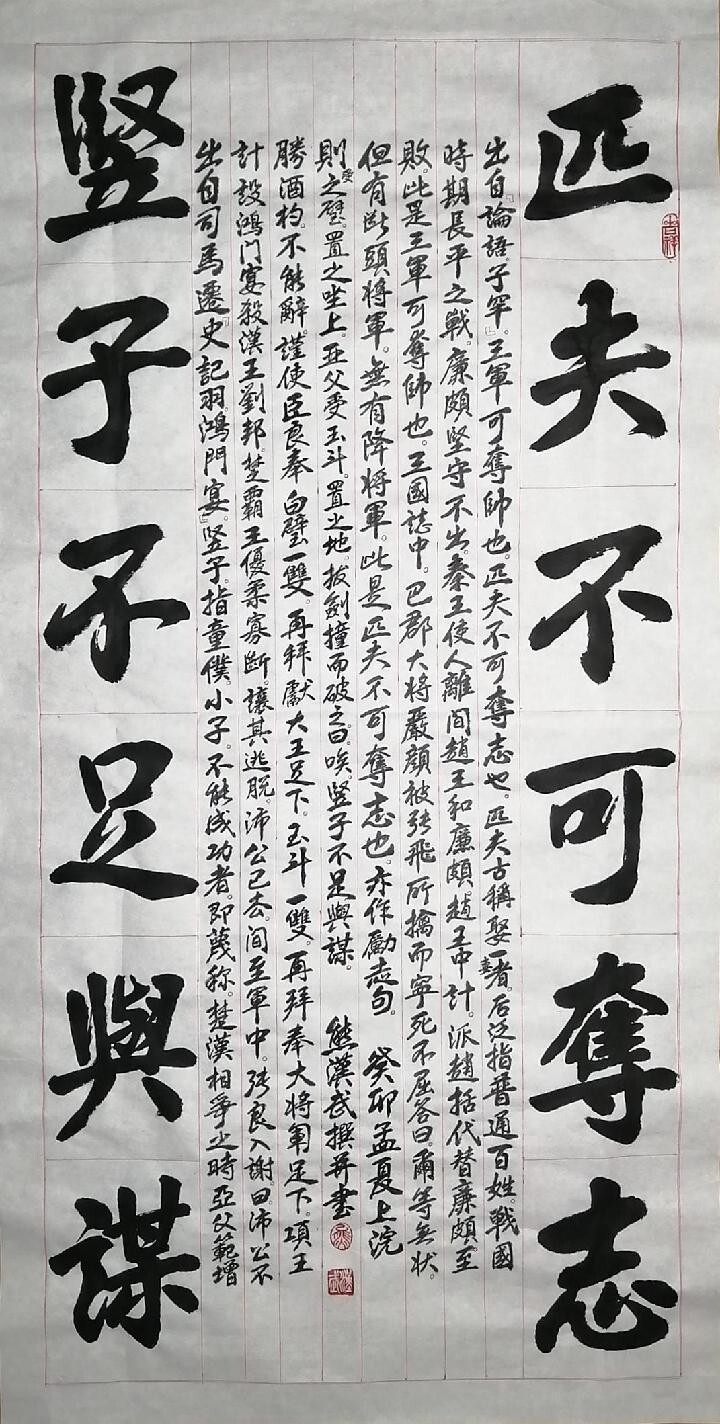 匹夫不可奪志
出自『論語。子罕』。三軍可奪帥也。匹夫不可奪志也。匹夫古稱娶一妻者。后泛指普通百姓。戰國
時期長平之戰。廉頗堅守不出。秦王使人離间趙王和廉頗。趙王中計。派趙括代替廉頗。至
敗。此是三軍可奪帥也。三國誌中。巴郡大将嚴顔被张飛所擒而寧死不屈答曰。爾等無状。
但有断頭将軍。無有降将軍。此是匹夫不可奪志也。亦作勵志句。
癸卯孟夏上浣
竪子不足與謀
出自司馬遷『史記羽。鴻門宴』。竖子。指童僕。小子。不能成功者。即蔑称。楚漢相爭之時亞父範增
計設鴻门宴殺漢王劉邦。楚霸王優柔寡断。讓其逃脱。沛公已去。间至軍中。张良入謝。曰沛公不
勝酒杓。不能辭。謹使臣良奉白璧一雙。再拜獻大王足下。玉斗一雙。再拜奉大将軍足下。項王
則受之璧。置之坐上。亞父受玉斗。置之地。拔劍撞而破之曰唉。竖子不足與謀。
熊漢武撰并書
吉祥
熊
漢武